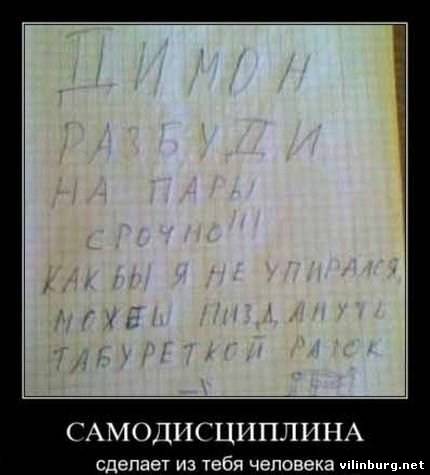 ДИМОН
РАЗБУДИ
НА ПАРЫ
СРОЧНО!!!
КАК БЫ Я НЕ УПИРАЛСЯ,
МОЖЕШ ПИЗДАНУТЬ
ТАБУРЕТКОЙ РАЗОК
САМОДИСЦИПЛИНА
сделает из тебя человека
vilinburg.net